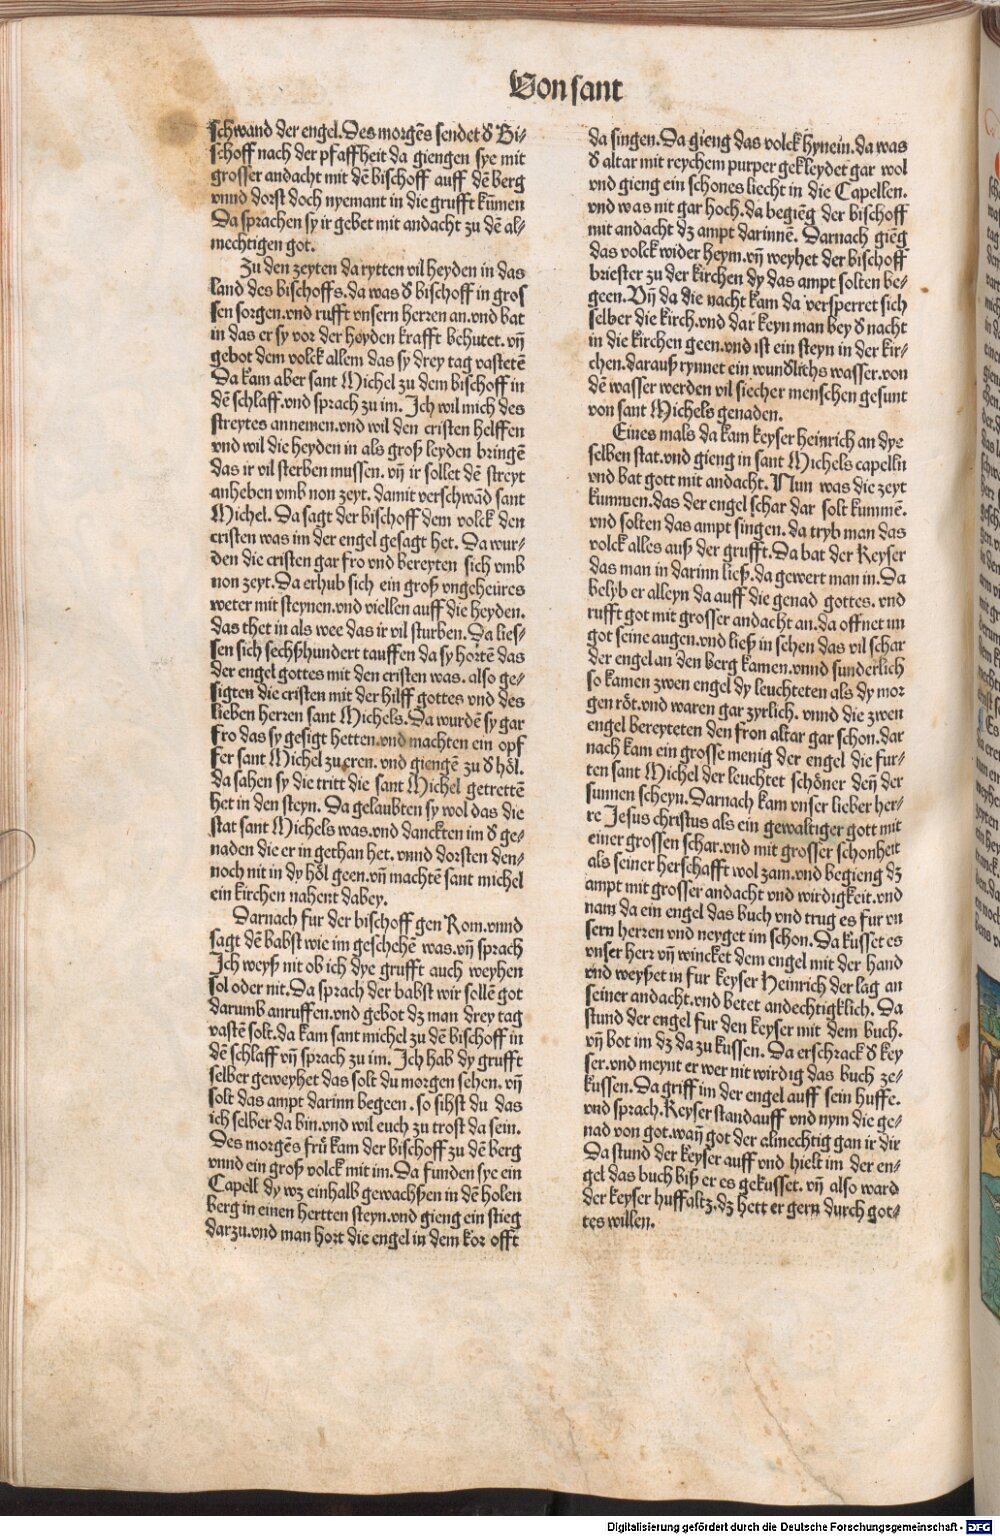 Von sant
schwand der engel. Des morgẽs sendet đ Bi⸗
schoff nach der pfaffheit da giengen sye mit
grosser andacht mit dẽ bischoff auff dẽ berg
vnnd dorst doch nyemant in die grufft kũmen
Da sprachen sy ir gebet mit andacht zu dẽ al⸗
mechtigen got.
Zu den zeyten da rytten vil heyden in das
land des bischoffs. da was đ bischoff in gros
sen sorgen. vnd rufft vnsern herren an. vnd bat
in das er sy vor der heyden krafft behutet. vñ
gebot dem volck allem das sy drey tag vastetẽ
Da kam aber sant Michel zu dem bischoff in
dẽ schlaff. vnd sprach zu im. Ich wil mich des
streytes annemen. vnd wil den cristen helffen
vnd wil die heyden in als groß leyden bringẽ
das ir vil sterben mussen. vñ ir sollet dẽ streyt
anheben vmb non zeyt. damit verschwãd sant
Michel. Da sagt der bischoff dem volck den
cristen was im der engel gesagt het. Da wur⸗
den die cristen gar fro vnd bereyten sich vmb
non zeyt. Da erhub sich ein groß vngeheures
weter mit steynen. vnd viellen auff die heyden.
das thet in als wee das ir vil sturben. Da lies⸗
sen sich sechßhundert tauffen da sy hortẽ das
der engel gottes mit den cristen was. also ge⸗
sigten die cristen mit der hilff gottes vnd des
lieben herren sant Michels. Da wurdẽ sy gar
fro das sy gesigt hetten. vnd machten ein opf
fer sant Michel zu eren. vnd giengẽ zu đ höl.
da sahen sy die tritt die sant Michel getrettẽ
het in den steyn. Da gelaubten sy wol das die
stat sant Michels was. vnd danckten im đ ge⸗
naden die er in gethan het. vnnd dorsten den⸗
noch nit in dy höl geen. vñ machtẽ sant michel
ein kirchen nahent dabey.
Darnach fur der bischoff gen Rom. vnnd
sagt dẽ babst wie im geschehẽ was. vñ sprach
Ich weyß nit ob ich dye grufft auch weyhen
sol oder nit. Da sprach der babst wir sollẽ got
darumb anruffen. vnd gebot dz man drey tag
vastẽ solt. da kam sant michel zu dẽ bischoff in
dẽ schlaff vñ sprach zu im. Ich hab dy grufft
selber geweyhet das solt du morgen sehen. vñ
solt das ampt darinn begeen. so sihst du das
ich selber da bin. vnd wil euch zu trost da sein.
Des morgẽs frü kam der bischoff zu dẽ berg
vnnd ein groß volck mit im. Da funden sye ein
Capell dy wz einhalb gewachßen in dẽ holen
berg in einen hertten steyn. vnd gieng ein stieg
darzu. vnd man hort die engel in dem kor offt
da singen. Da gieng das volck hynein. da was
đ altar mit reychem purper gekleydet gar wol
vnd gieng ein schones liecht in die Capellen.
vnd was nit gar hoch. da begiẽg der bischoff
mit andacht dz ampt darinnẽ. Darnach giẽg
das volck wider heym. vñ weyhet der bischoff
briester zu der kirchen dy das ampt solten be⸗
geen. Vñ da die nacht kam da versperret sich
selber die kirch. vnd dar keyn man bey đ nacht
in die kirchen geen. vnd ist ein steyn in der kir⸗
chen. darauß rynnet ein wunđlichs wasser. von
dẽ wasser werden vil siecher menschen gesunt
von sant Michels genaden.
Eines mals da kam keyser heinrich an dye
selben stat. vnd gieng in sant Michels capelln
vnd bat gott mit andacht. Nun was die zeyt
kummen. das der engel schar dar solt kummẽ.
vnd solten das ampt singen. da tryb man das
volck alles auß der grufft. Da bat der Keyser
das man in darinn ließ. da gewert man in. Da
belyb er alleyn da auff die genad gottes. vnd
rufft got mit grosser andacht an. da offnet im
got seine augen. vnd ließ in sehen das vil schar
der engel an den berg kamen. vnnd sunderlich
so kamen zwen engel dy leuchteten als dy mor
gen röt. vnd waren gar zyrlich. vnnd die zwen
engel bereyteten den fron altar gar schon. dar
nach kam ein grosse menig der engel die fur⸗
ten sant Michel der leuchtet schöner deñ der
sunnen scheyn. Darnach kam vnser lieber her⸗
re Jesus christus als ein gewaltiger gott mit
einer grossen schar. vnd mit grosser schonheit
als seiner herschafft wol zam. vnd begieng dz
ampt mit grosser andacht vnd wirdigkeit. vnd
nam da ein engel das buch vnd trug es fur vn
sern herren vnd neyget im schon. Da kusset es
vnser herr vñ wincket dem engel mit der hand
vnd weyßet in fur keyser Heinrich der lag an
seiner andacht. vnd betet andechtigklich. Da
stund der engel fur den keyser mit dem buch.
vñ bot im dz da zu kussen. Da erschrack đ key
ser. vnd meynt er wer nit wirdig das buch ze⸗
kussen. Da griff im der engel auff sein huffe.
vnd sprach. Keyser stand auff vnd nym die ge⸗
nad von got. wañ got der almechtig gan ir dir
Da stund der keyser auff vnd hielt im der en⸗
gel das buch biß er es gekusset. vñ also ward
der keyser huffaltz. dz hett er gern durch got⸗
tes willen.
Digitalisierung gefördert durch die Deutsche Forschungsgemeinschaft - DFG